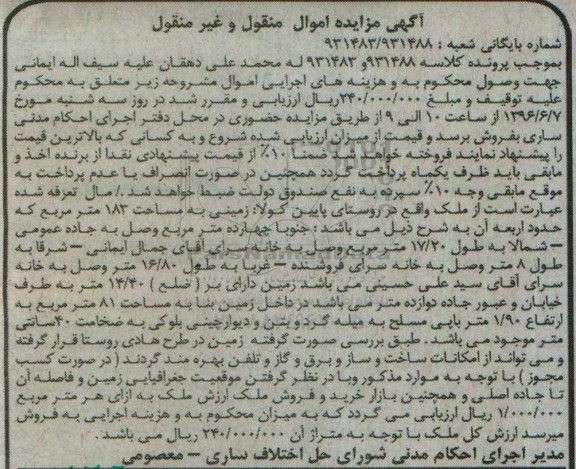 آگهی مزایده اموال منقول و غیر منقول
شماره بایگانی شعبه : ۹۳۱۴۸۳/۹۳۱۴۸۸
بموجب پرونده کلاسه ۹۳۱۴۸۸و ۹۳۱۴۸۳ له محمد علی دهقان علیه سیف اله ایمانی
جهت وصول محکوم به و هزینه های اجرایی اموال مشروحه زیر متعلق به محکوم
علیه توقیف و مبلغ ۲۴۰/۰۰۰/۰۰۰ریال ارزیابی و مقرر شد در روز سه شنبه مورخ
۱۳۹۶/۶/۷ از ساعت ۱۰ الی ۹ از طریق مزایده حضوری در محل دفتر اجرای احکام مدنی
ساری بفروش برسد و قیمت از میزان ارزیابی شده شروع و به کسانی که بالاترین قیمت
را پیشنهاد نمایند فروخته خواهد شد ضمنا ۱۰٪ از قیمت پیشنهادی نقدا از برنده اخذ و
مابقی باید ظرف یکماه پرداخت گردد همچنین در صورت انصراف یا عدم پرداخت به
موقع مابقی وجه ۱۰٪ سپرده به نفع صندوق دولت ضبط خواهد شد ./ مال تعرفه شده
عبارت است از ملک واقع در روستای پایین کولا: زمینی به مساحت ۱۸۳ متر مربع که
حدود اربعه آن به شرح ذیل می باشد : جنوبا چهارده متر مربع وصل به جاده عمومی
– شمالا به طول ۱۷/۲۰ متر مربع وصل به خانه سرای آقای جمال ایمانی – شرقا به
طول ۸ متر وصل به خانه سرای فروشنده – غربا به طول ۱۶/۸۰ متر وصل به خانه
سرای آقای سید علی حسینی می باشد زمین دارای بر ( ضلع ) ۱۴/۴۰ متر به طرف
خیابان و عبور جاده دوازده متر می باشد در داخل زمین بنا به مساحت ۸۱ متر مربع به
ارتفاع ۱/۹۰ متر باپی مسلح به میله گرد و بتن و دیوارچینی بلوکی به ضخامت ۴۰سانتی
متر موجود می باشد . طبق بررسی صورت گرفته زمین در طرح هادی روستا قرار گرفته
و می تواند از امکانات ساخت و ساز و برق و گاز و تلفن بهره مند گردند ( در صورت کسب
مجوز ) با توجه به موارد مذکور وبا در نظر گرفتن موقعیت جغرافیایی زمین و فاصله آن
تا جاده اصلی و همچنین بازار خرید و فروش ملک ارزش ملک به ازای هر متر مربع
۱/۰۰۰/۰۰۰ ریال ارزیابی می گردد که به میزان محکوم به و هزینه اجرایی به فروش
میرسد ارزش کل ملک با توجه به متراژ آن ۲۴۰/۰۰۰/۰۰۰ ریال می باشد .
مدیر اجرای احکام مدنی شورای حل اختلاف ساری – معصومی